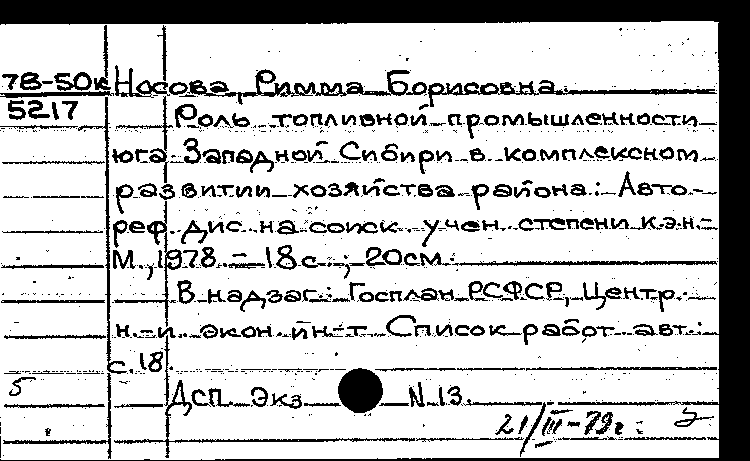 78-50к Носова, Римма Борисовна.
5217 Роль топливной промышленности
юга Западной Сибири в комплексном
развитии хозяйства района: Авто-
реф. дис. на соиск. учен. степени к.э.н.-
М., 1978. - 18 с. ; 20 см.
В надзаг.: Госплан РСФСР, Центр.
н.-и. экон. ин-т. Список работ авт.:
с. 18.
5 ДСП. Экз. N 13.
21/III-79г.